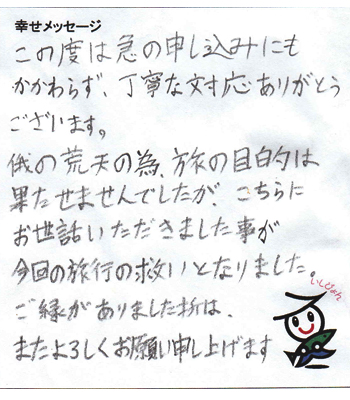 幸せメッセージ
この度は急の申し込みにも
かかわらず、丁寧な文対応ありがとう
ございます。
俄の荒天の為、旅の目的は
果たせませんでしたが、こちらに
お世話いただきました事が
今回の旅行の救いとなりました。
ご縁がありました折は、
またよろしくお願い申し上げます
いしぴょん